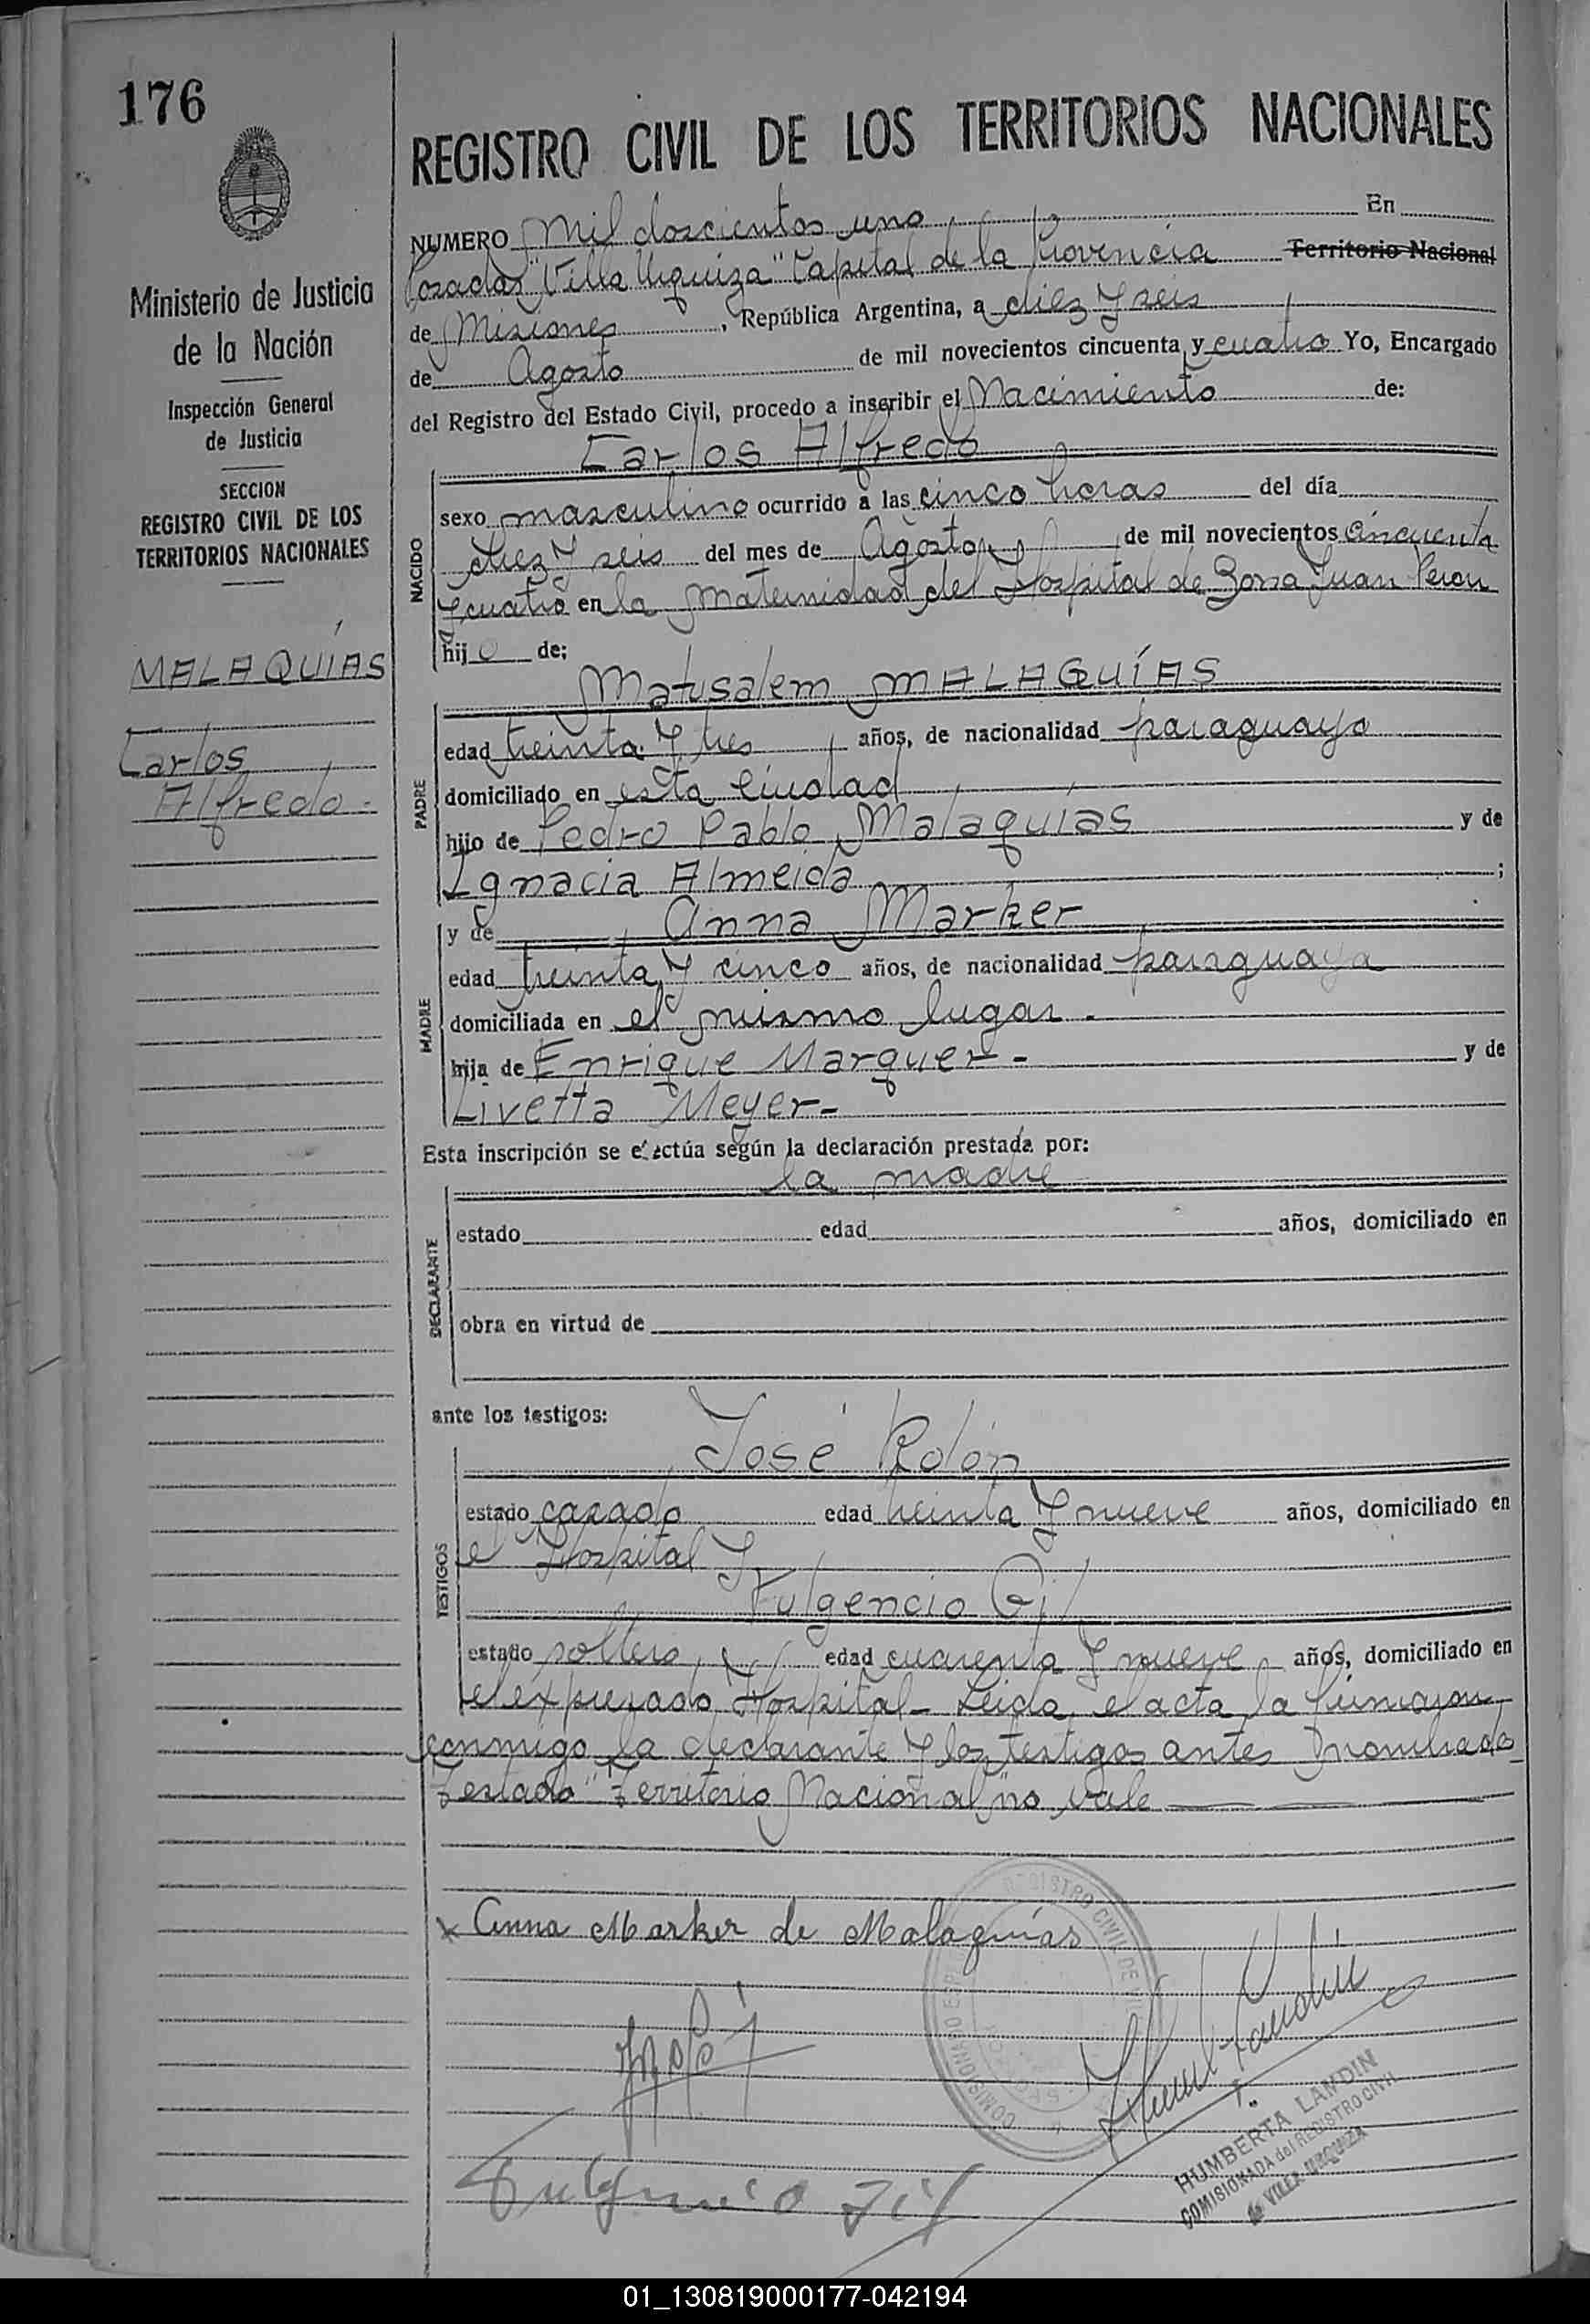 176
Ministerio de Justicia
de la Nación
Inspección General
de Justicia
SECCION
REGISTRO CIVIL DE LOS
TERRITORIOS NACIONALES
MALAQUÍAS
Carlos
Alfredo.-
REGISTRO CIVIL DE LOS TERRITORIOS NACIONALES
NUMERO Mil doscientos uno En
Posadas "Villa Urquiza" Capital de la Provincia Territorio Nacional
de Misiones, República Argentina, a diez y seis
de Agosto de mil novecientos cincuenta y cuatro Yo, Encargado
del Registro del Estado Civil, procedo a inscribir el Nacimiento de:
Carlos Alfredo
NACIDO
sexo masculino ocurrido a las cinco horas del día
diez y seis del mes de Agosto de mil novecientos cincuenta
y cuatro en la Maternidad del Hospital de Zona Juan Peron
hijo de;
Matusalem MALAQUÍAS
PADRE
edad treinta y tres años, de nacionalidad paraguayo
domiciliado en esta Ciudad
hijo de Pedro Pablo Malaquías y de
Ignacia Almeida ;
y de Anna Marker
MADRE
edad treinta y cinco años, de nacionalidad paraguaya
domiciliada en el mismo lugar.-
hija de Enrique Marquer- y de
Livetta Meyer-
Esta inscripción se efectúa según la declaración prestada por:
la madre
DECLARANTE
estado edad años, domiciliado en
obra en virtud de
ante los testigos:
José Rolón
TESTIGOS
estado casado edad treinta y nueve años, domiciliado en
el Hospital y
Fulgencio Gil
estado soltero, edad cuarenta y nueve años, domiciliado en
el expresado Hospital- Leida el acta la firmaron
conmigo la declarante y los testigos antes nombrados
Testado "Territorio Nacional" no vale
x Anna Marker de Malaquías
Fulgencio Gil
HUMBERTA LANDIN
COMISIONADA del REGISTRO CIVIL
de VILLA URQUIZA
01_130819000177-042194